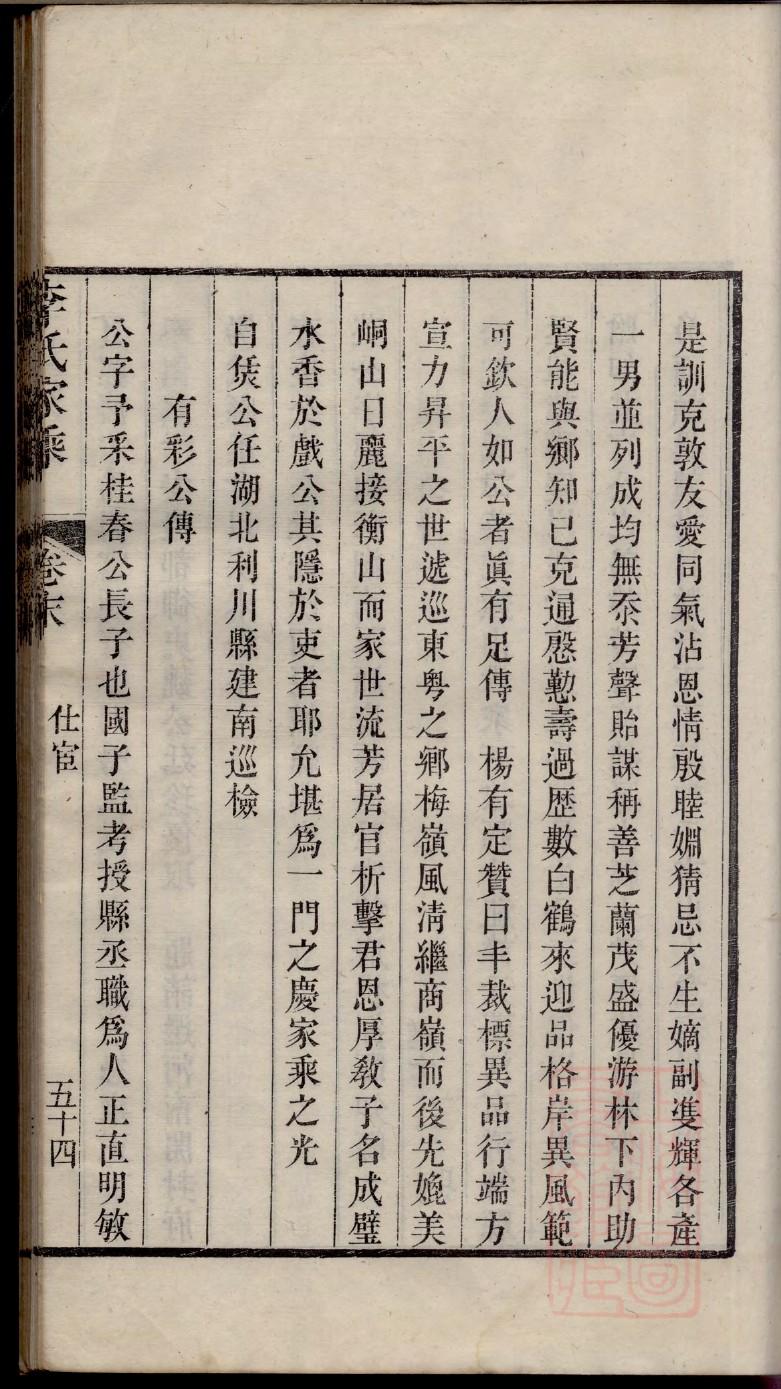 是訓克敦友愛同氣沾恩情殷睦婣猜忌不生嫡副䨇輝各產
一男並列成均無忝芳聲貽謀稱善芝蘭茂盛優游林下內助
賢能與鄉知已克通慇懃壽過歷數白鶴來迎品格岸異風範
可欽人如公者眞有足傳　楊有定贊曰丰裁標異品行端方
宣力昇平之世遞巡東粵之鄉梅嶺風淸繼商嶺而後先媲美
峒山日麗接衡山而家世流芳居官析擊君恩厚敎子名成璧
水香於戲公其隱於吏者耶允堪爲一門之慶家乘之光
自䇮公任湖北利川縣建南巡檢
有彩公傳
公字予釆桂春公長子也國子監考授縣丞職爲人正直明敏
李氏家乘　卷末　仕宦　五十四